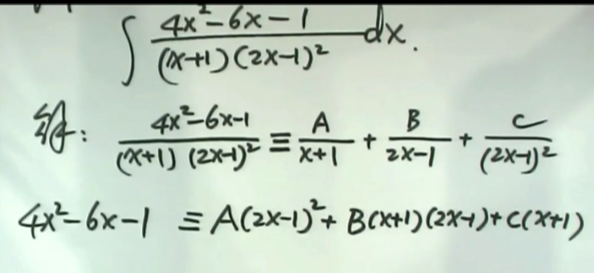 ∫ (4x²-6x-1)/((x+1)(2x-1)²) dx.
解: (4x²-6x-1)/((x+1)(2x-1)²) ≡ A/(x+1) + B/(2x-1) + C/(2x-1)²
4x²-6x-1 ≡ A(2x-1)²+ B(x+1)(2x-1)+C(x+1)